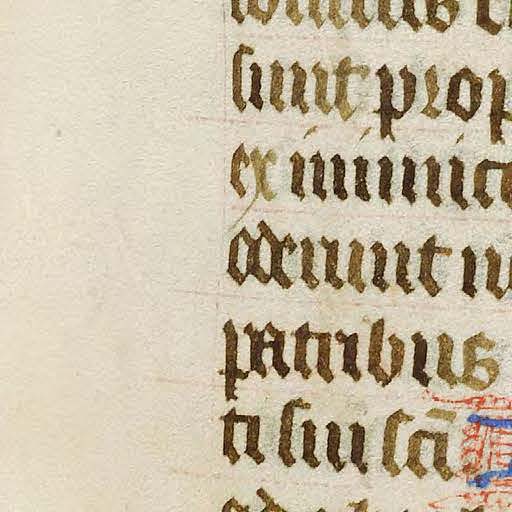 sunt prop
ex inimic
oderunt n
patribus
ti sui sc̄i